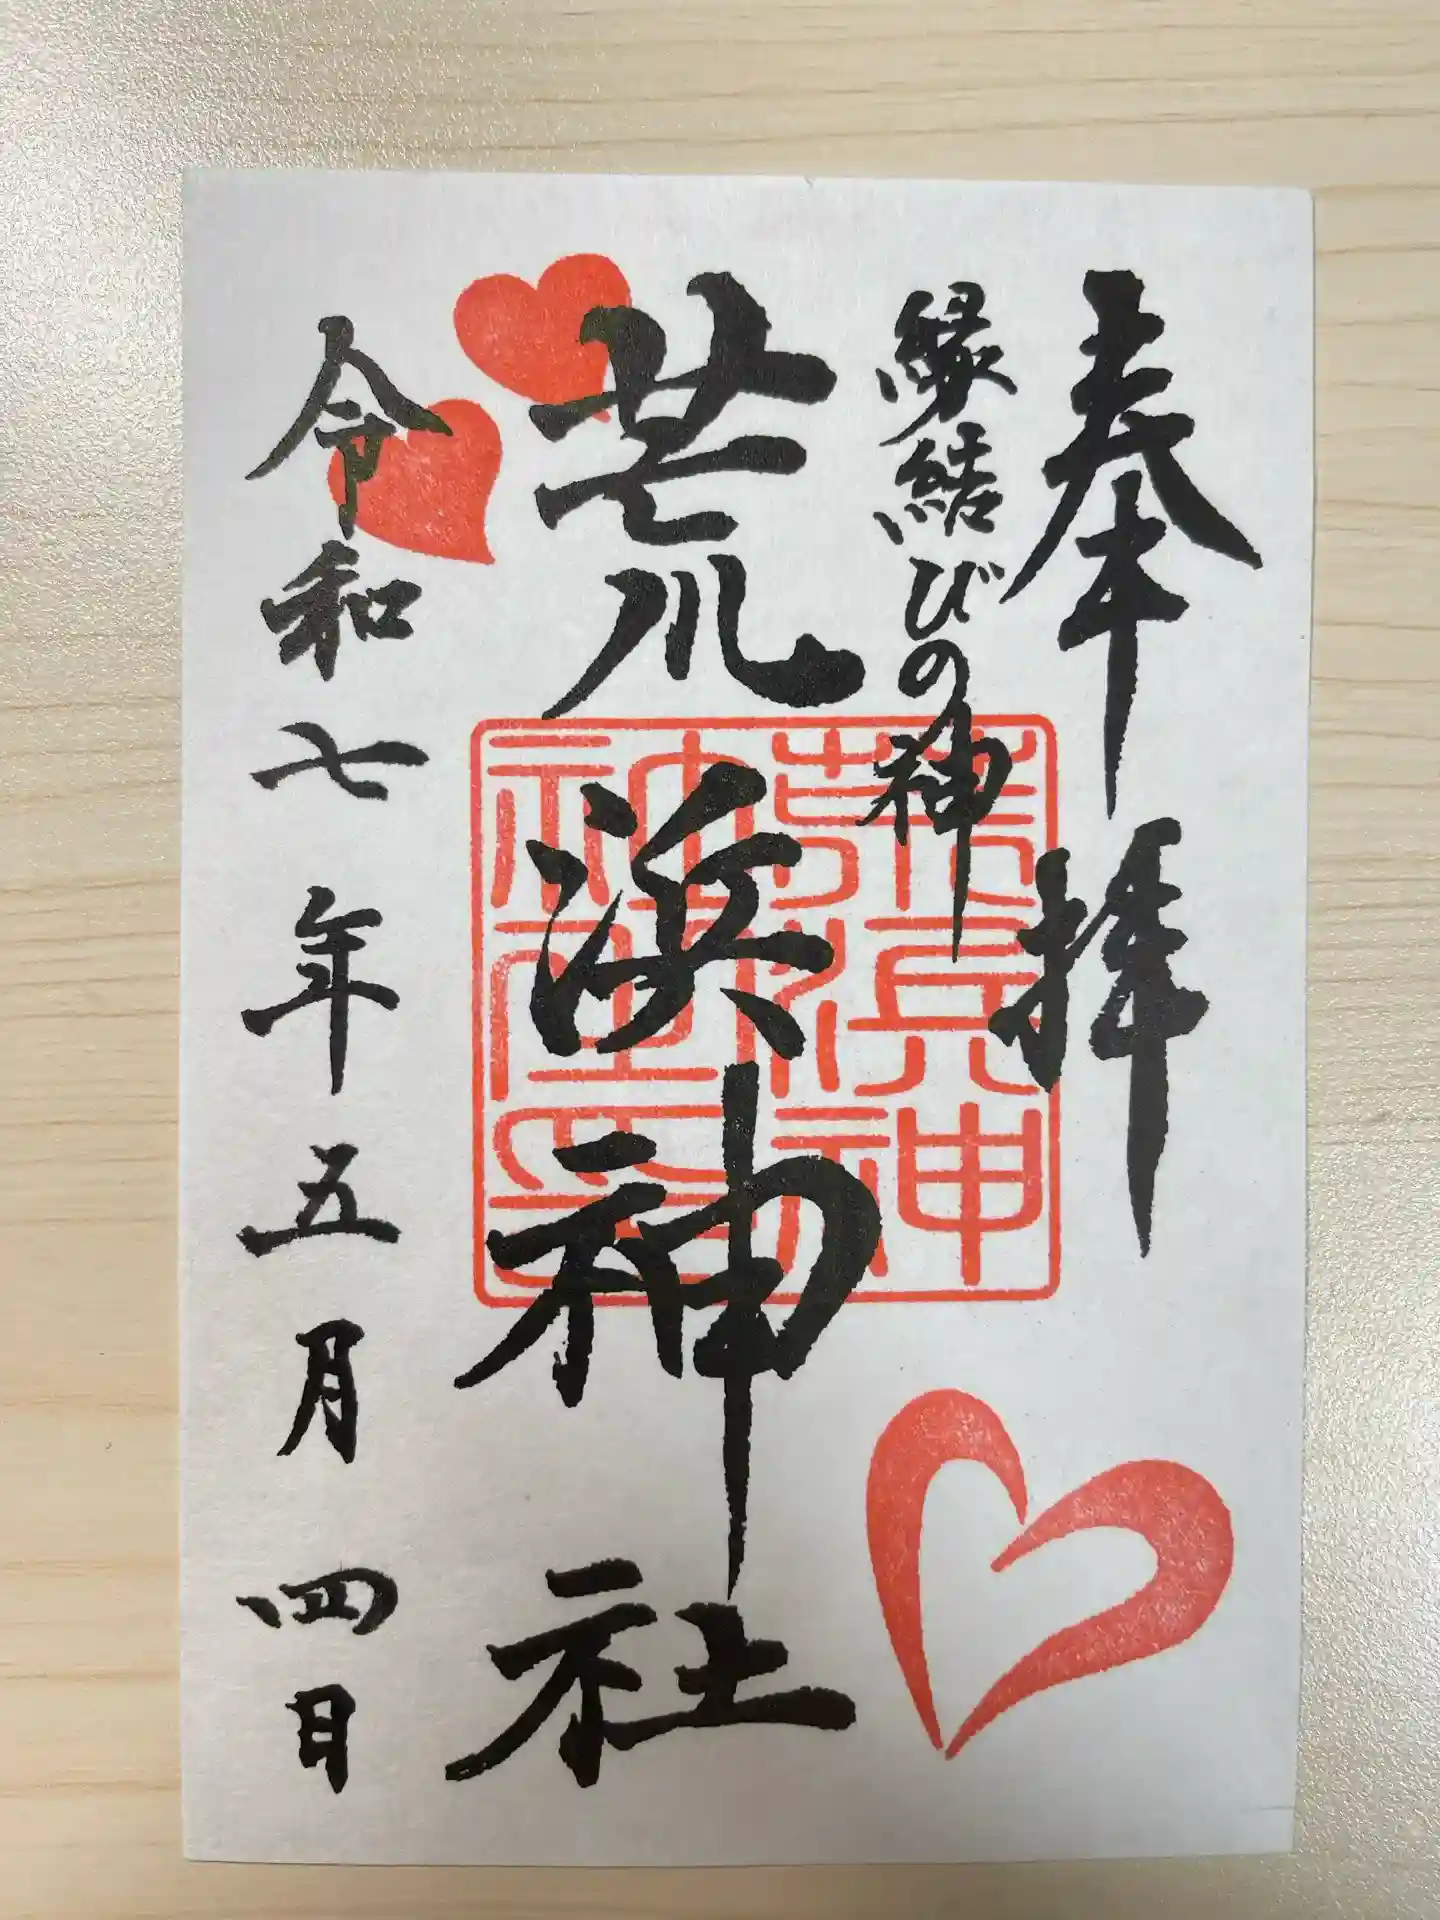 奉拝
縁結びの神
荒浜神社
荒浜神
社神社印
令和七年五月四日